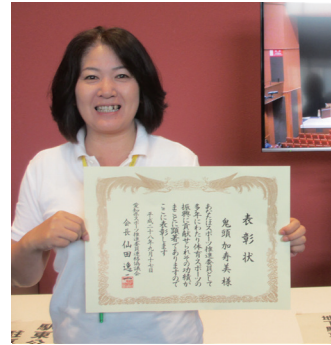 表彰状
鬼頭加寿美 様
あなたはスポーツ推進委員として
多年にわたり体育スポーツの
振興に貢献せられその功績が
まことに顕著でありますので
ここに表彰します
平成二十八年九月十七日
愛知県スポーツ推進委員連絡協議会
会長 仙田逸